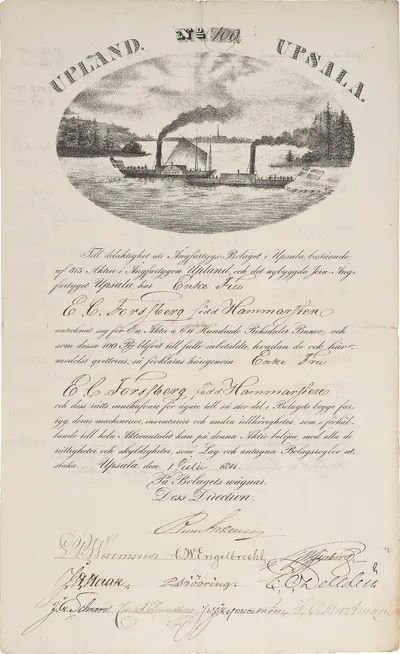 UPLAND. No 100. UPSALA.
Till delaktighet uti Ångfartygs Bolaget i Upsala, bestående
af 315 Aktier i Ångfartygen Upland och det nybyggda Jern-Ång-
fartyget Upsala har Enke Fru
E. C. Forssberg född Hammarsten
antecknat sig för En Aktie à Ett Hundrade Riksdaler Banco, och
som dessa 100 Rd blifvit till fullo inbetalde, hvarför de ock här-
medelst qvitteras, så förklaras härigenom Enke Fru
E. C. Forssberg född Hammarsten
och dess rätts innehafvare för ägare till så stor del i Bolagets begge far-
tyg, deras machinerier, inventarier och andra tillhörigheter, som i förhål-
lande till hela Aktieantalet kan på denna Aktie belöpa, med alla de
rättigheter och skyldigheter, som Lag och antagna Bolagsregler ut-
staka. Upsala den 1 Julii
På Bolagets wägnar
Dess Direction.
C. W. Engelbrecht
J. A. Haak P. Sjöbring